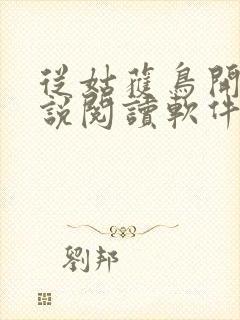 從姑獲鳥開
說閱讀軟件
劉邦